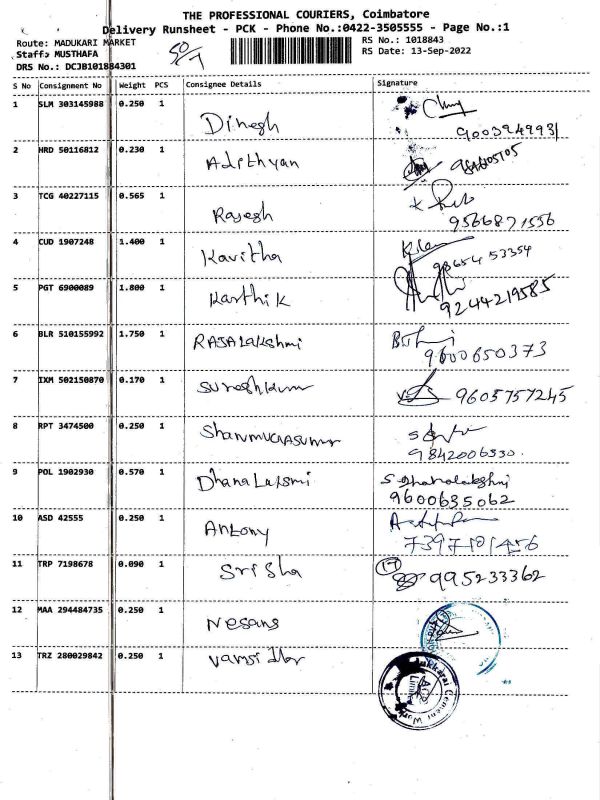 THE PROFESSIONAL COURIERS, Coimbatore
Delivery Runsheet - PCK - Phone No.:0422-3505555 - Page No.:1
Route: MADUKARI MARKET
RS No.: 1018843
Staff: MUSTHAFA
RS Date: 13-Sep-2022
DRS No.: DCJB101884301
S No Consignment No Weight PCS Consignee Details Signature
1 SLM 303145988 0.250 1 Dinesh
2 HRD 50116812 0.230 1 Adithyan
3 TCG 40227115 0.565 1 Rajesh
9566871556
4 CUD 1907248 1.400 1 Kavitha
98654 53354
5 PGT 6900089 1.800 1 Karthik
9244219585
6 BLR 510155992 1.750 1 RAJALakshmi
9600650373
7 IXM 502150870 0.170 1 Sureshkumar
9605757245
8 RPT 3474500 0.250 1
9842006330
9 POL 1902930 0.570 1 DhanaLaxsmi S Dhanalakshmi
9600635062
10 ASD 42555 0.250 1 Antony
7397101456
11 TRP 7198678 0.090 1 Srisha 17 995233362
12 MAA 294484735 0.250 1 Nesans
13 TRZ 280029842 0.250 1
ACC Limited
Cement Works